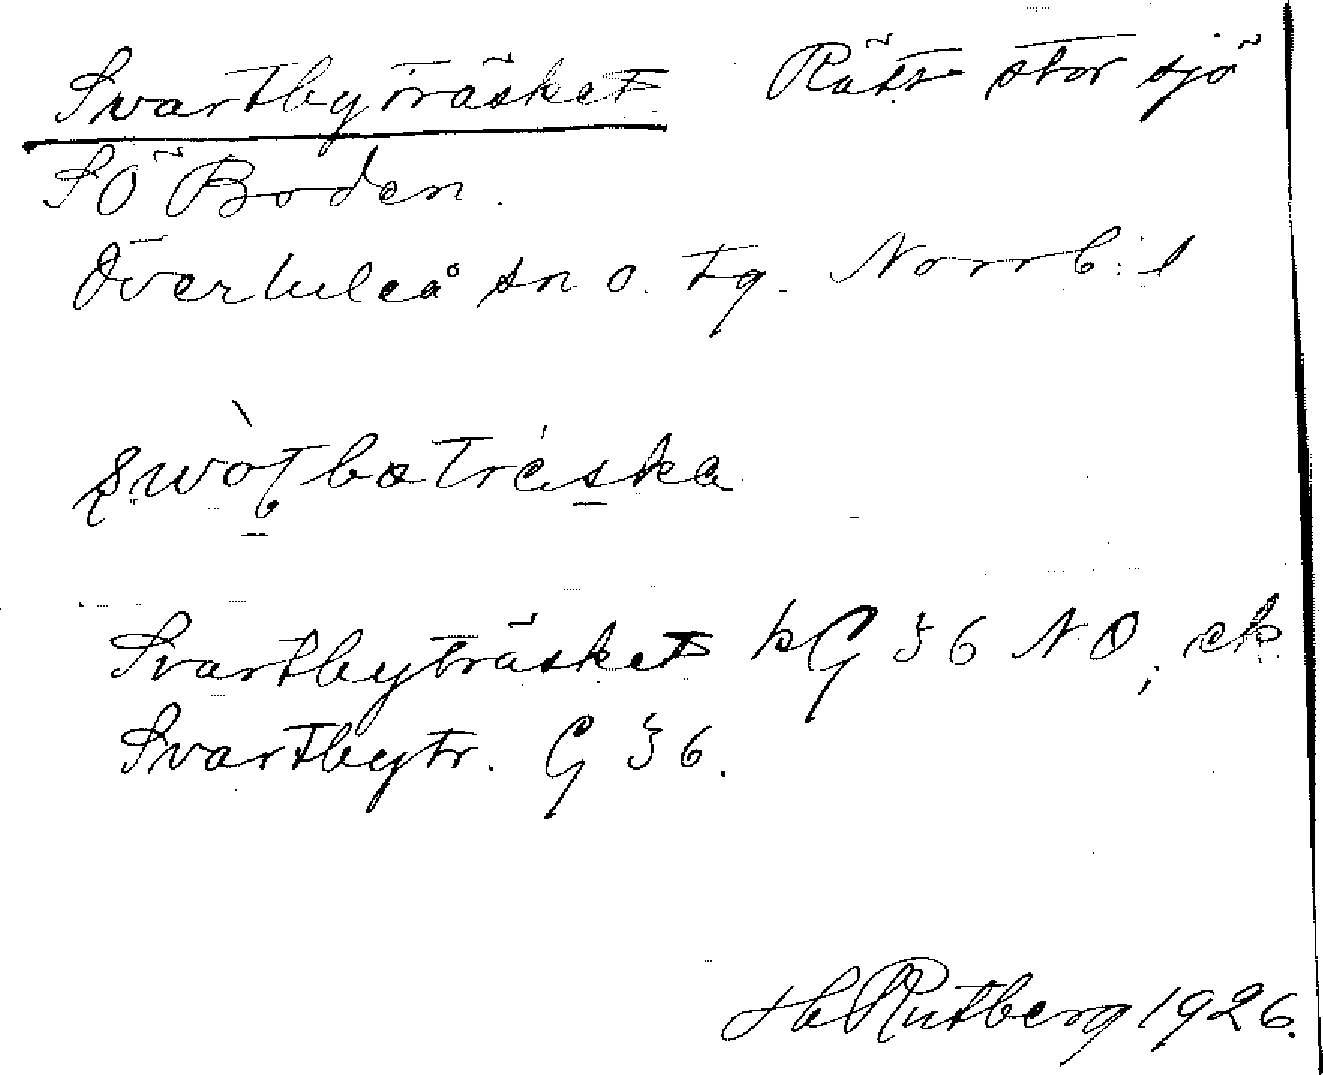 Svartbyträsket Rätt stor sjö
SÖ Boden.
Överluleå sn o. tg. Norrb. l
swòtbatréska
Svartbyträsket kG 36 NO; ek
Svartbytr. G 36.
H Rutberg 1926.